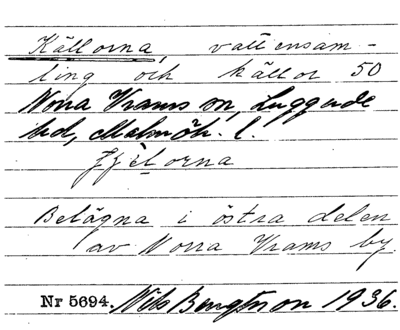 Källorna, vattensam-
ling och källor 50
Norra Vrams sn, Luggude
hd, Malmöh. l.
tjelorna
Belägna i östra delen
av Norra Vrams by.
Nr 5694. Nils Bengtsson 1936.